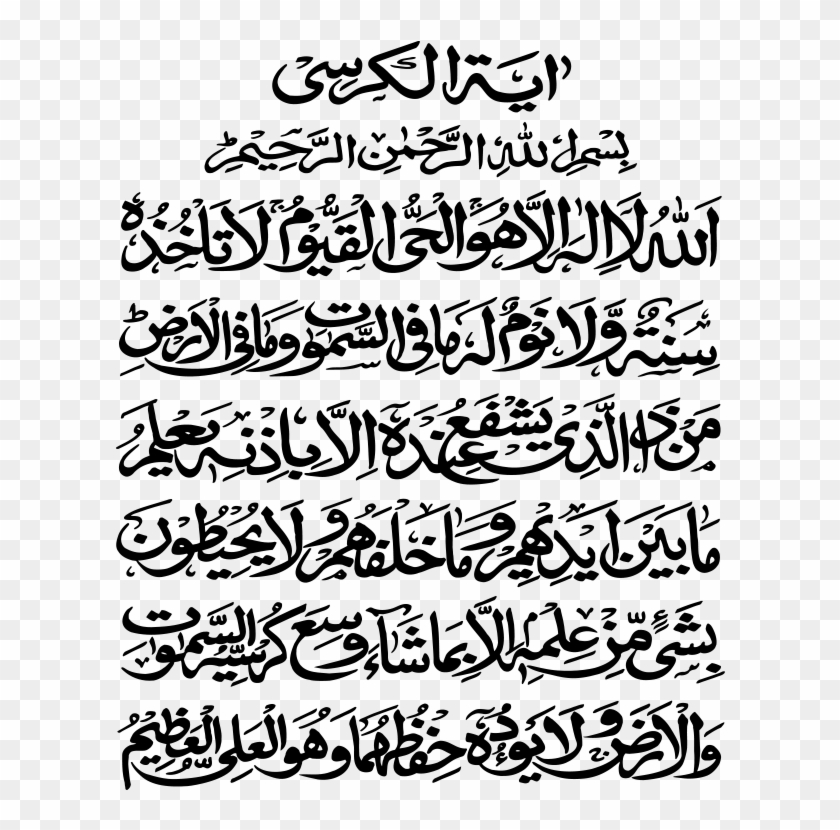 اية الكرسى
بِسْمِ اللهِ الرَّحْمٰنِ الرَّحِيْمِ
اَللهُ لَا اِلٰهَ اِلَّا هُوَ الْحَىُّ الْقَيُّوْمُ لَا تَاْخُذُهٗ
سِنَةٌ وَّلَا نَوْمٌ لَهٗ مَا فِى السَّمٰوٰتِ وَمَا فِى الْاَرْضِ
مَنْ ذَا الَّذِىْ يَشْفَعُ عِنْدَهٗ اِلَّا بِاِذْنِهٖ يَعْلَمُ
مَا بَيْنَ اَيْدِيْهِمْ وَمَا خَلْفَهُمْ وَلَا يُحِيْطُوْنَ
بِشَىْءٍ مِّنْ عِلْمِهٖ اِلَّا بِمَا شَآءَ وَسِعَ كُرْسِيُّهُ السَّمٰوٰتِ
وَالْاَرْضَ وَلَا يَئُوْدُهٗ حِفْظُهُمَا وَهُوَ الْعَلِىُّ الْعَظِيْمُ